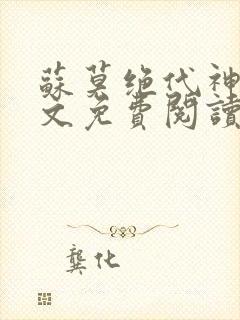 蘇莫絕代神
文免費閱讀
龔化